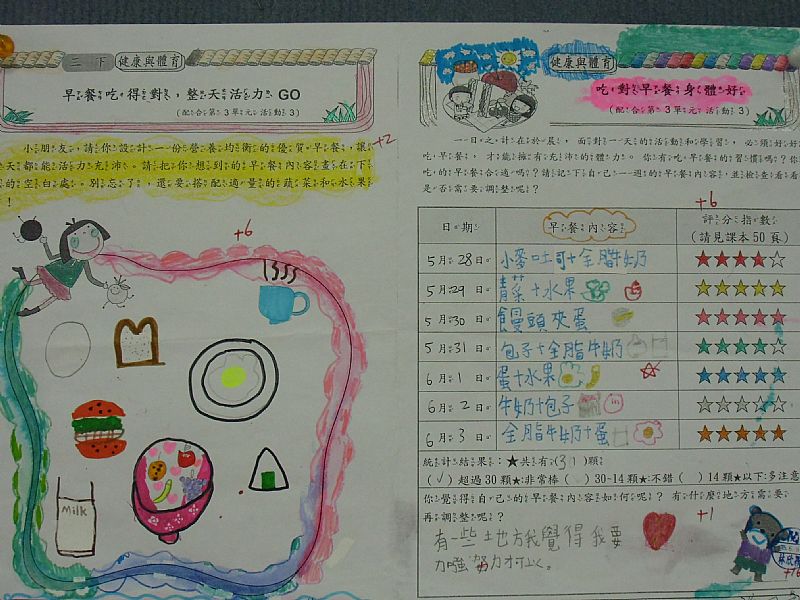 三 下 健康與體育
早餐吃得對，整天活力 GO
(配合第 3 單元活動 3)
小朋友，請你設計一份營養均衡的優質早餐，讓
天都能活力充沛。請把你想到的早餐內容畫在下
的空白處。別忘了，還要搭配適量的蔬菜和水果
！
+2
+6
Milk
健康與體育
吃對早餐身體好
(配合第 3 單元活動 3)
一日之計在於晨，面對一天的活動和學習，必須好好
吃早餐，才能擁有充沛的體力。你有吃早餐的習慣嗎？你
吃的早餐合適嗎？請記下自己一週的早餐內容，並檢查看看
是否需要調整呢？
+6
日期 早餐內容 評分指數
(請見課本 50 頁)
5月28日 小麥吐司+全脂牛奶 ★★★★☆
5月29日 青菜+水果 ★★★★★
5月30日 饅頭夾蛋 ★★★★★
5月31日 包子+全脂牛奶 ★★★★☆
6月1日 蛋+水果 ★★★★★
6月2日 牛奶+包子
6月3日 全脂牛奶+蛋 ★★★★★
統計結果：★共有(31)顆
(✓)超過 30 顆★：非常棒 ( )30-14 顆★：不錯 ( )14 顆★以下：多注意
你覺得自己的早餐內容如何呢？有什麼地方需要
再調整呢？
+1
有一些地方我覺得我要
加強努力才可以。